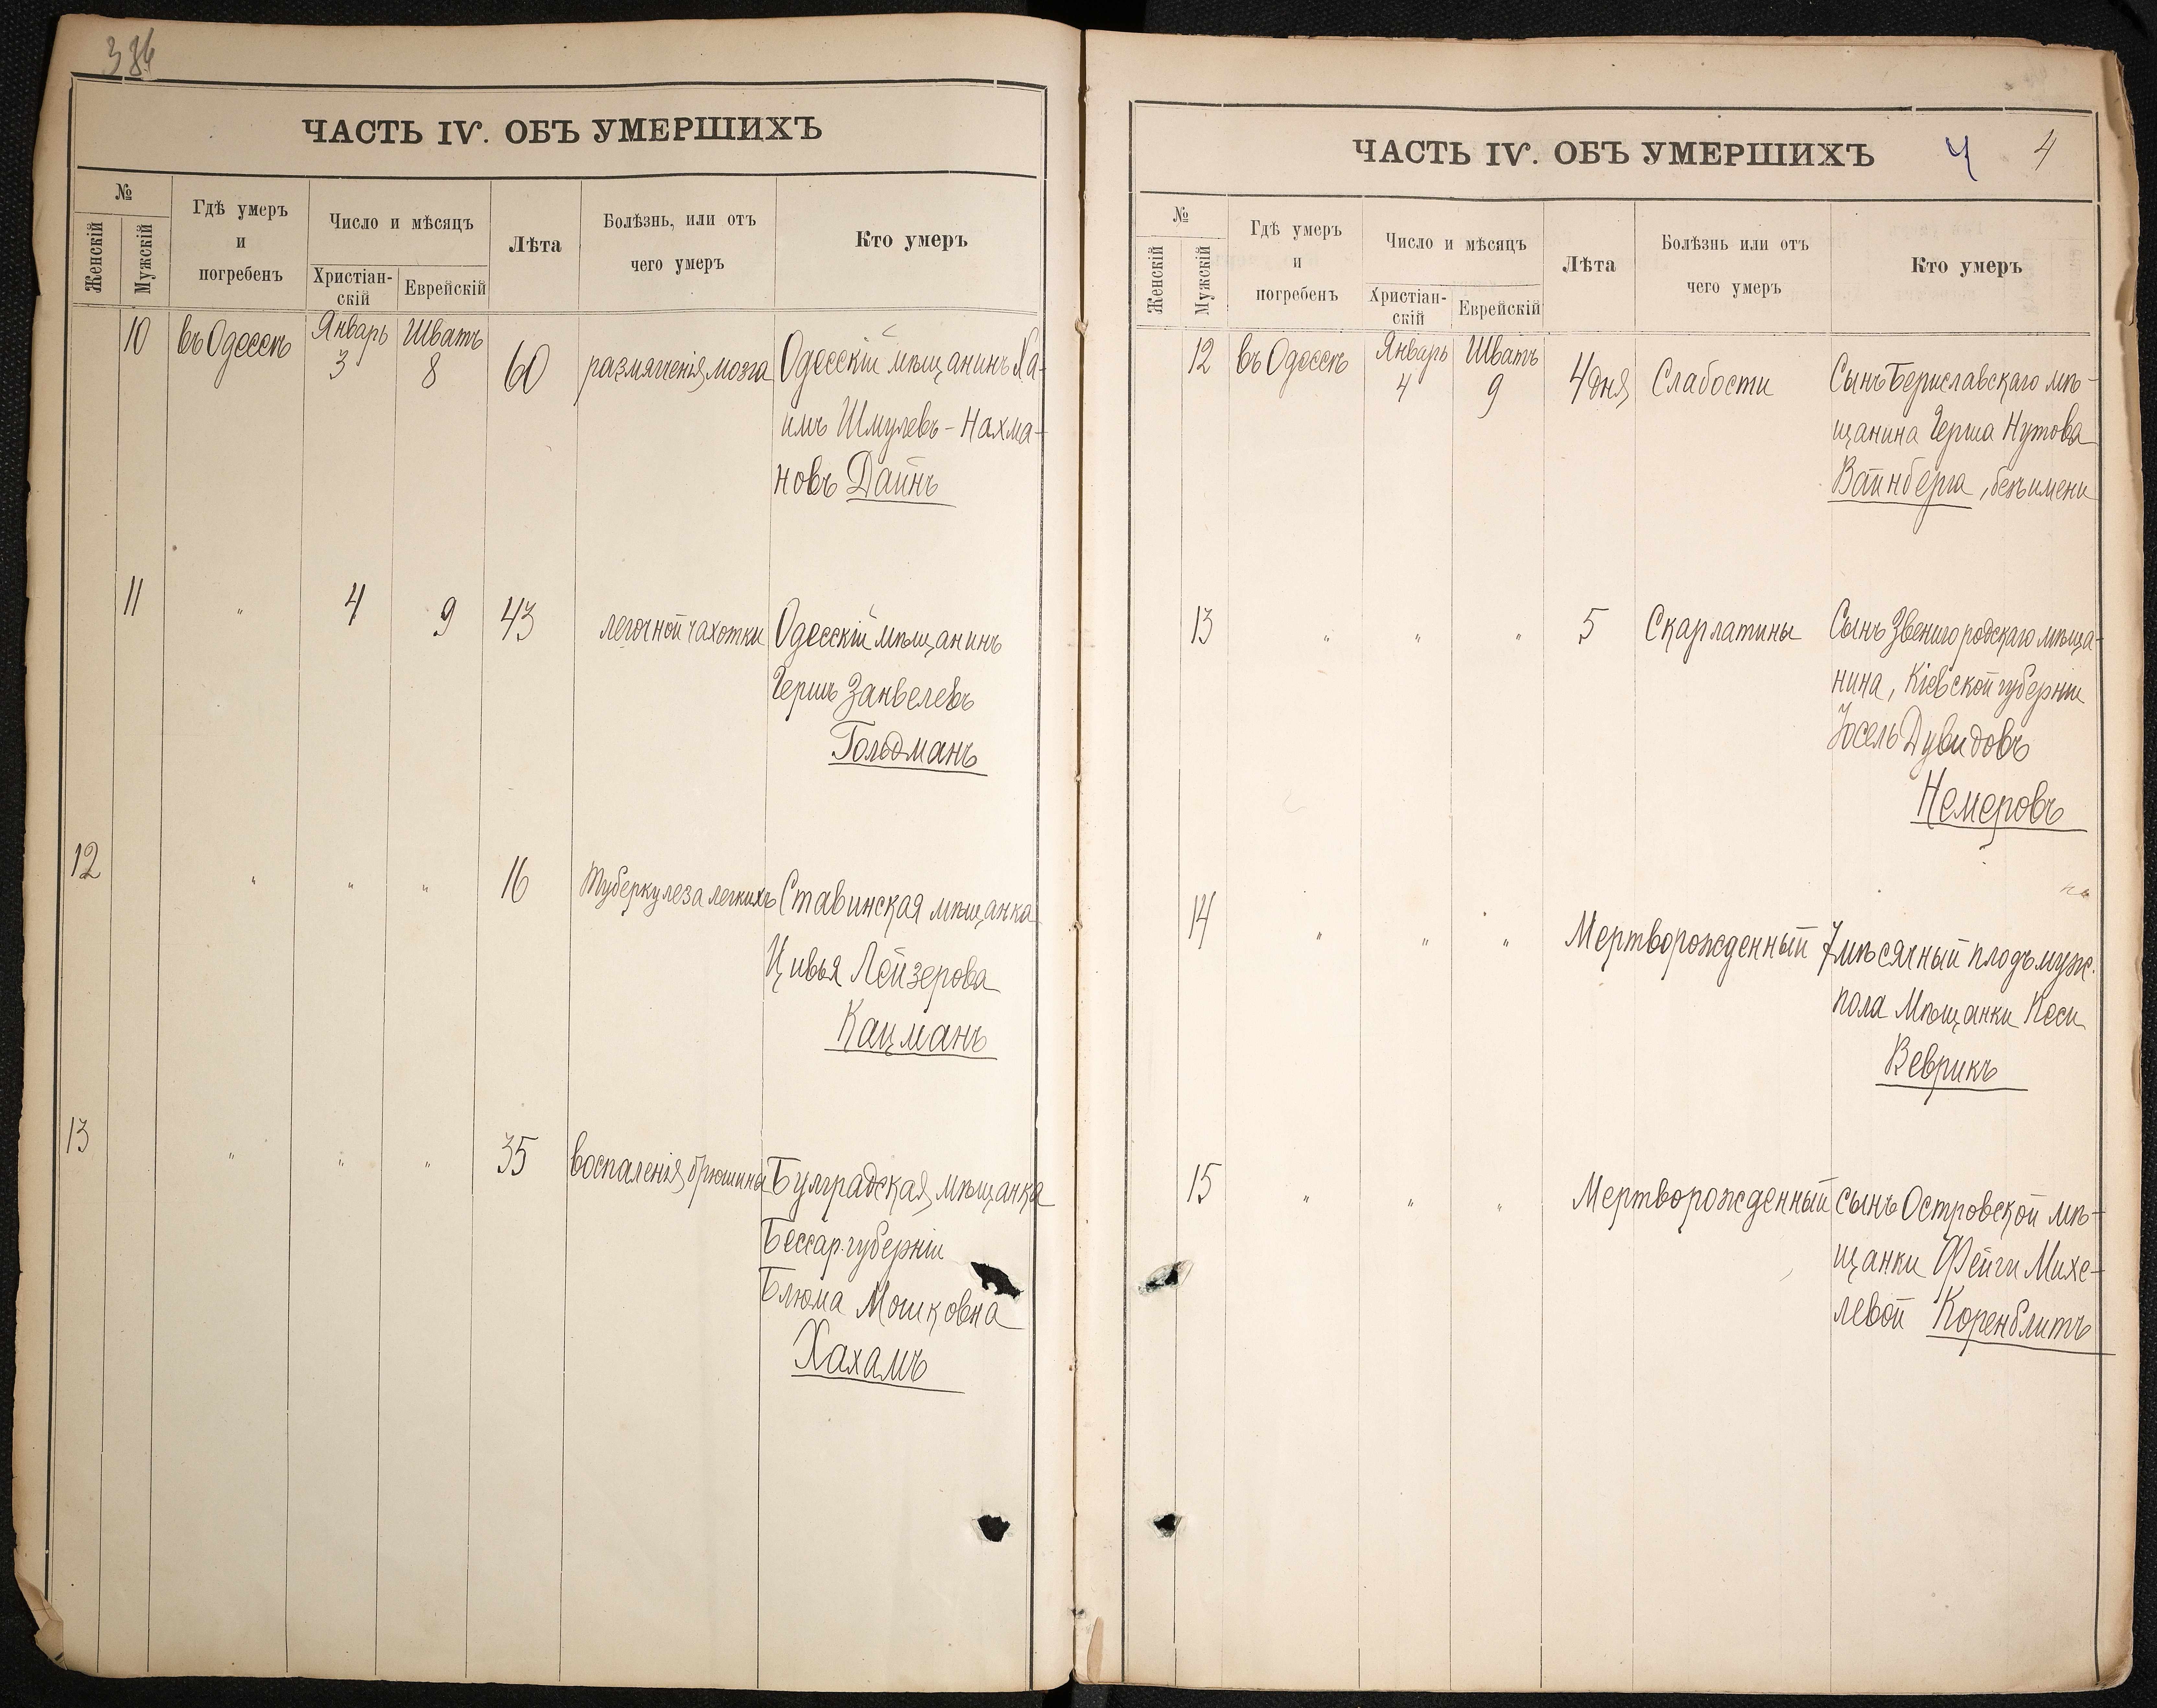 ЧАСТЬ IV. ОБЪ УМЕРШИХЪ
№
Женскій
Мужскій
Гдѣ умеръ
и
погребенъ
Число и мѣсяцъ
Христіан-
скій
Еврейскій
Лѣта
Болѣзнь, или отъ
чего умеръ
Кто умеръ
10 въ Одессѣ Январь 3 Шватъ 8 60 размягченія мозга Одесскій мѣщанинъ Ха-
имъ Шмулевъ-Нахма-
новъ Дайнъ
11 " 4 9 43 легочной чахотки Одесскій мѣщанинъ
Гершъ Занвелевъ
Гольдманъ
12 " " " 16 Туберкулеза легкихъ Ставинская мѣщанка
Цивья Лейзерова
Кацманъ
13 " " " 35 воспаленія брюшины Булградская мѣщанка
Бессар. губерніи
Блюма Мошковна
Хахамъ
ЧАСТЬ IV. ОБЪ УМЕРШИХЪ 4 4
№
Женскій
Мужскій
Гдѣ умеръ
и
погребенъ
Число и мѣсяцъ
Христіан-
скій
Еврейскій
Лѣта
Болѣзнь или отъ
чего умеръ
Кто умеръ
12 въ Одессѣ Январь 4 Шватъ 9 4 дня Слабости Сынъ Бериславскаго мѣ-
щанина Герша Нутова
Вайнберга, безъ имени
13 " " " 5 Скарлатины Сынъ Звенигородскаго мѣща-
нина, Кіевской губерніи
Іосель Дувидовъ
Немеровъ
14 " " " Мертворожденный 7 мѣсячный плодъ муж.
пола Мѣщанки Песи
Веврикъ
15 " " " Мертворожденный сынъ Островской мѣ-
щанки Фейги Михе-
левой Коренблитъ